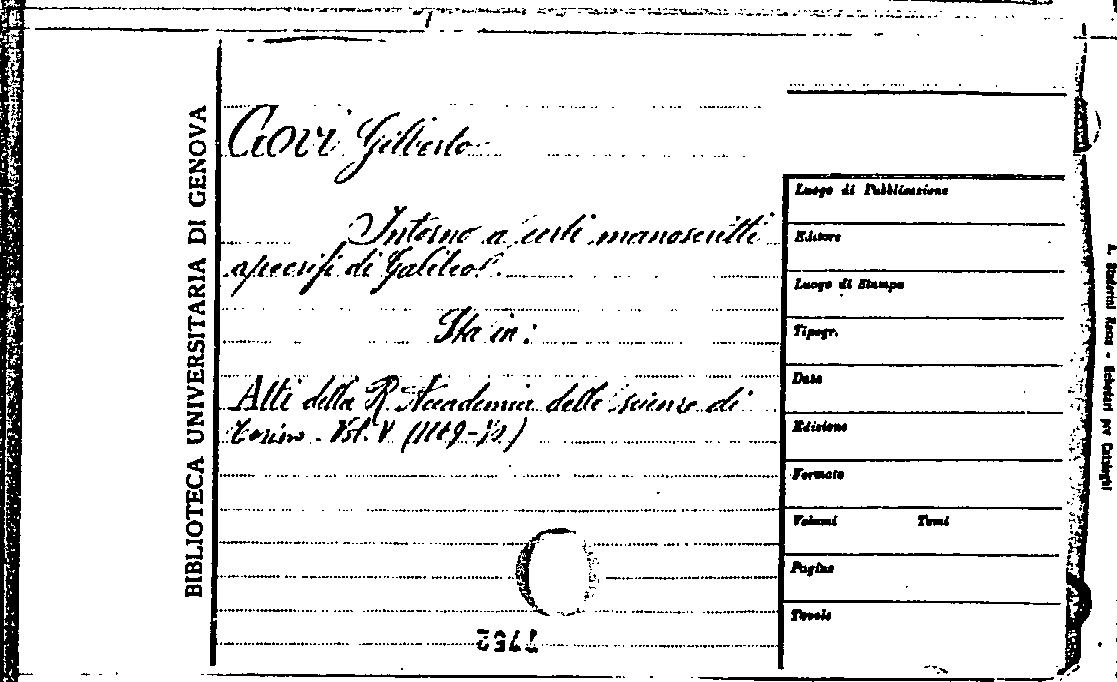 BIBLIOTECA UNIVERSITARIA DI GENOVA
Govi Gilberto
Intorno a certi manoscritti
apocrifi di Galileo.
Sta in:
Atti della R. Accademia delle scienze di
Torino. Vol. V (1869-70)
Luogo di Pubblicazione
Editore
Luogo di Stampa
Tipogr.
Data
Edizione
Formato
Volumi Tomi
Pagine
Tavole